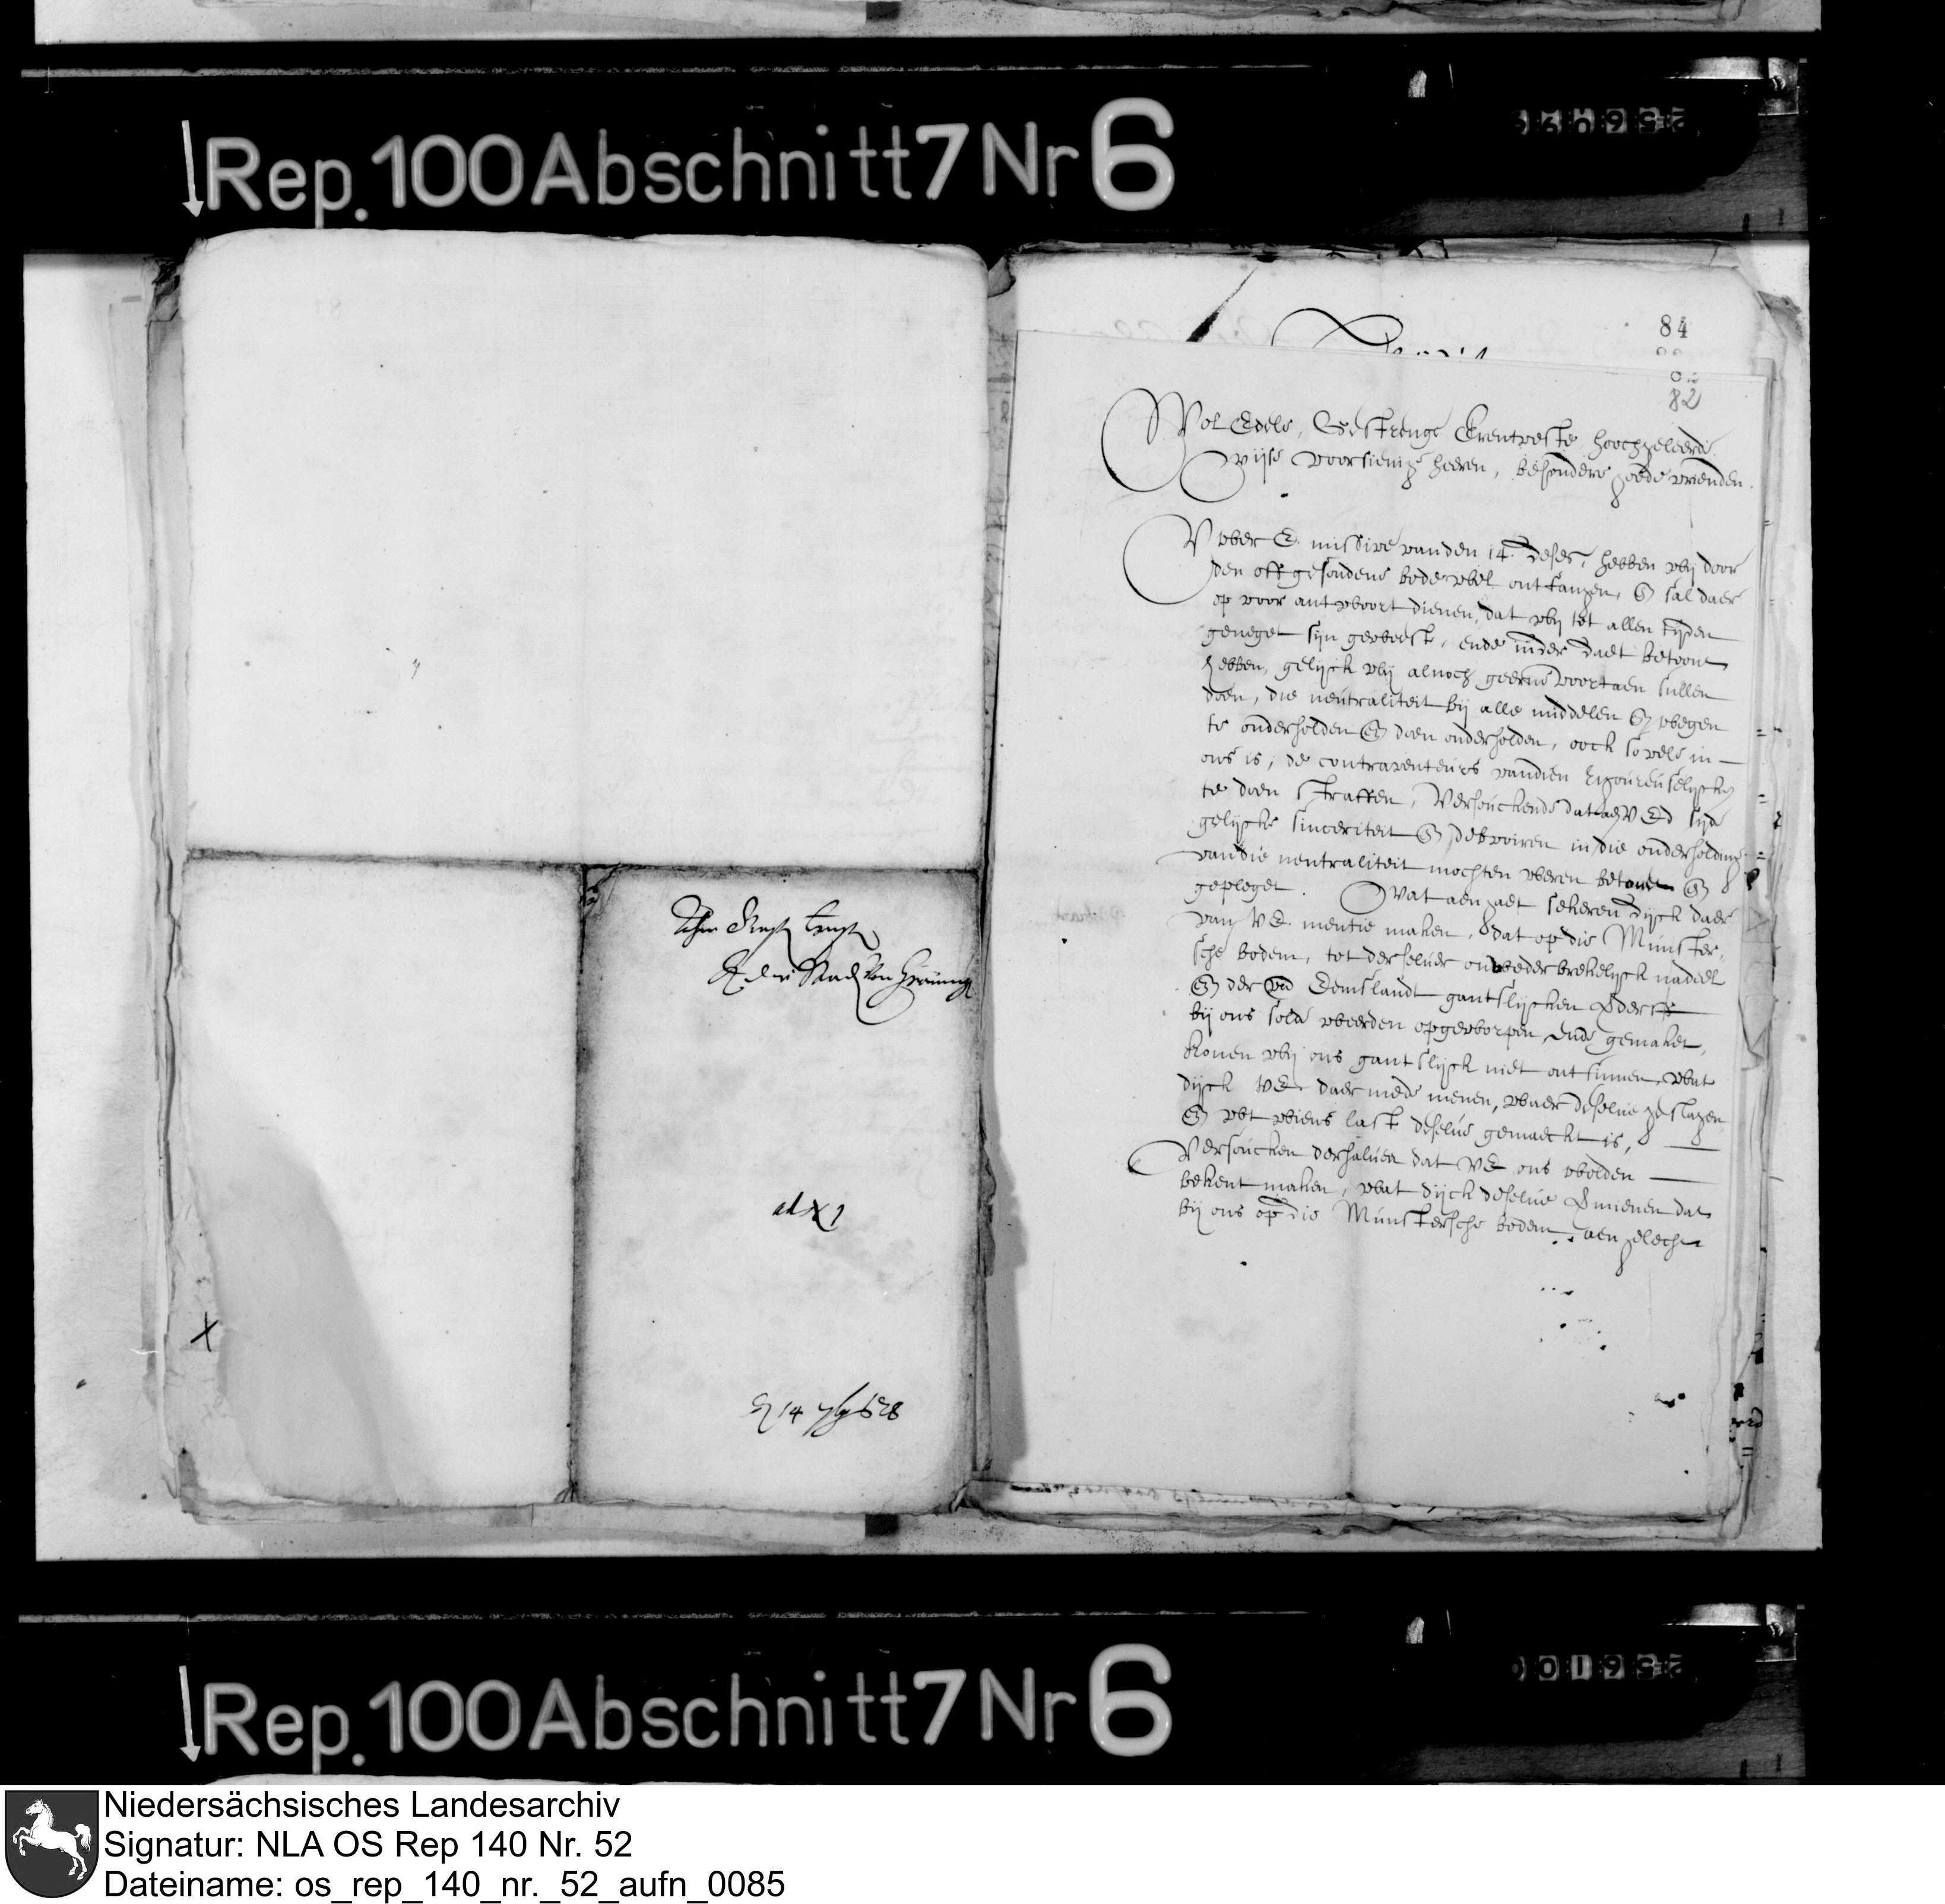 Rep. 100 Abschnitt 7 Nr 6
ad X 1
X
14 7br 1628
84
82
Wol Edele, Gestrenge Erentveste, hoochgeleerde
wijse voorsienige heeren, besondere goede vrienden.
Vwer E. missive van den 14 deses, hebben wij door
den off gesondene bode wel ontfangen, en sal daer
op voor antwoort dienen, dat wij tot allen tijden
geneget sijn geweest, ende inder daet betoont
hebben, gelijck wij alnoch geerne voortaen sullen
doen, die neutraliteit bij alle middelen en wegen
te onderholden en doen onderholden, oock so vele in
ons is, de contraventeurs van dien rigoureuselijck
te doen straffen, Versouckende dat aen V Ed sijde
gelijcke sinceriteit en debvoiren in die onderholdinge
van die neutraliteit mochten weren betoent en
gepleget. Wat aengaet sekeren dijck daer
van V E. mentie maken, dat op die Munster-
sche bodem, tot derselver onwederbrekelijck nadeel
en der Eemslandt gantslijcken verderff
bij ons solde weerden opgeworpen, ende gemaket,
konen wij ons gantslijck niet ontsinnen, wat
dijck V E. daer mede menen, waer deselve geslagen
en wt wiens last deselve gemaeckt is,
Versoucken derhalven dat V E ons wolden
bekent maken, wat dijck deselve vermienen dat
bij ons op die Munstersche bodem aengelecht
Rep. 100 Abschnitt 7 Nr 6
Niedersächsisches Landesarchiv
Signatur: NLA OS Rep 140 Nr. 52
Dateiname: os_rep_140_nr._52_aufn_0085